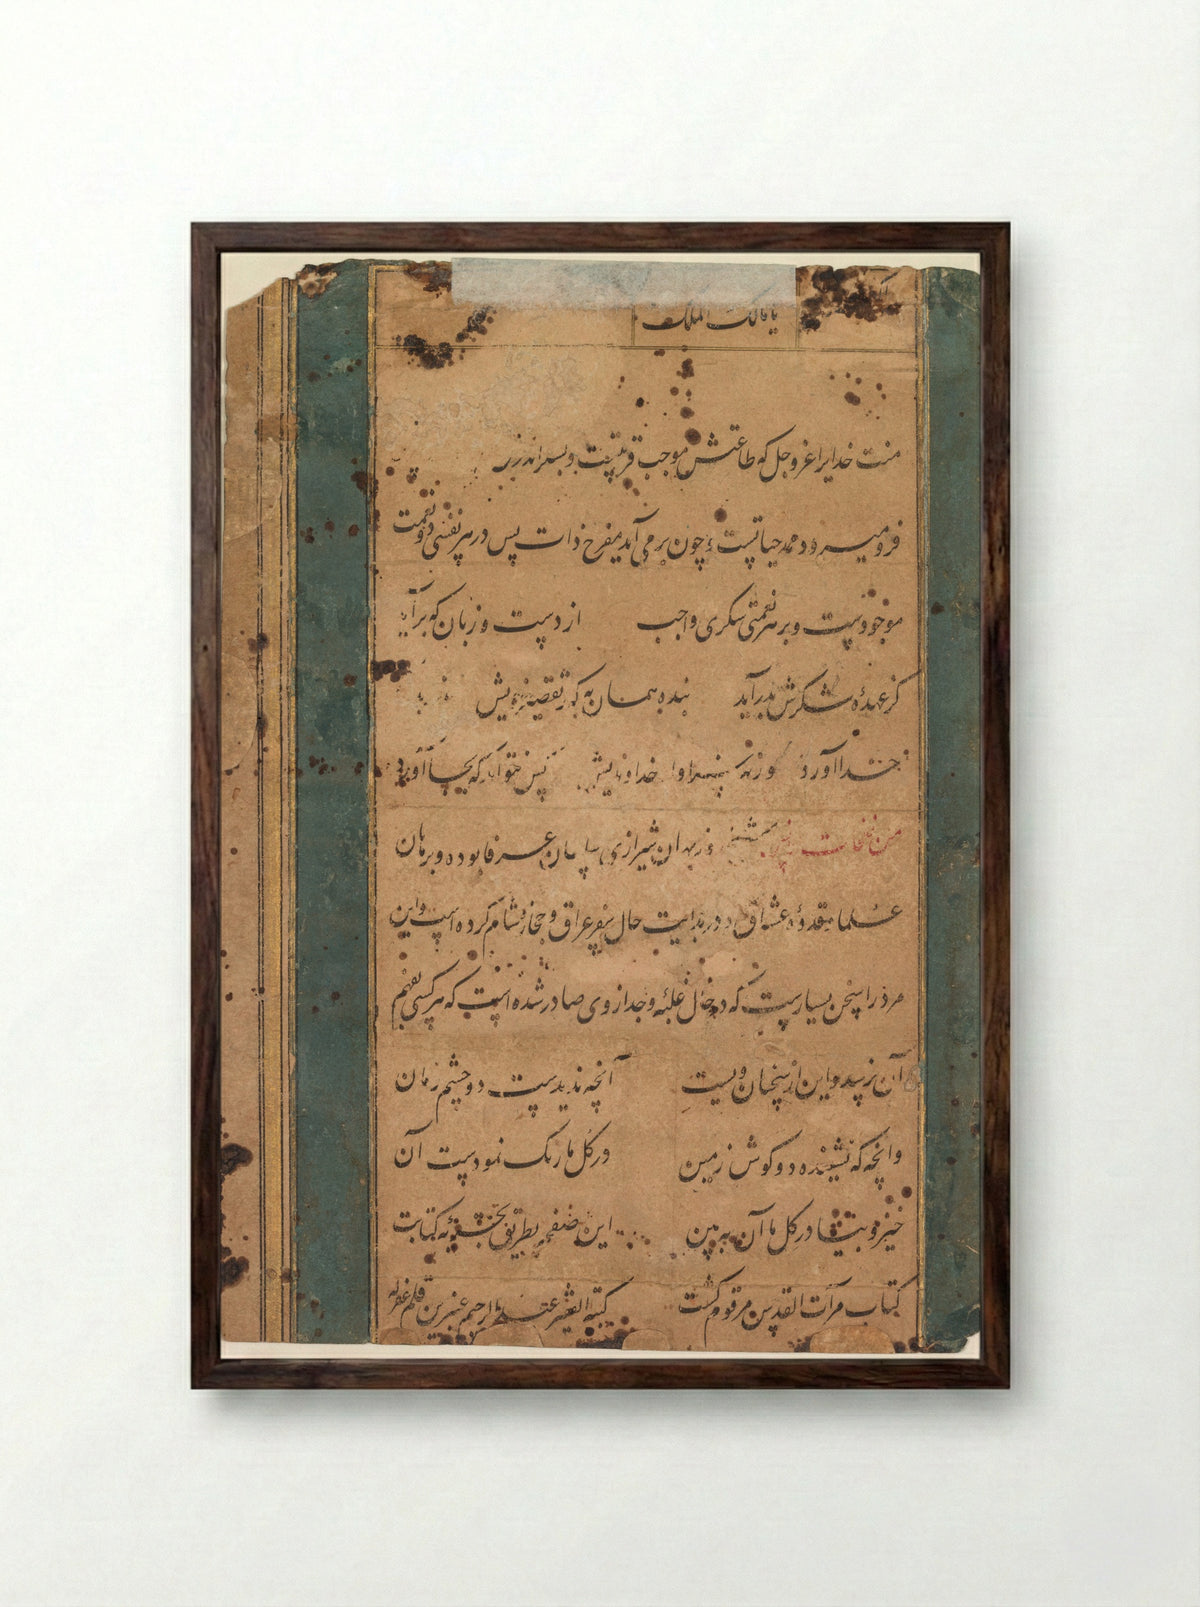 یا مالک الملک
منت خدایرا عز و جل که طاعتش موجب قربتست و بشکر اندرش
فرو میرود ممد حیاتست و چون بر می آید مفرح ذات پس در هر نفسی دو نعمت
موجودست و بر هر نعمتی شکری واجب از دست و زبان که برآید
کز عهدهٔ شکرش بدرآید بنده همان به که ز تقصیر خویش
خدا آورد ورنه خداوندیش کس نتواند که بجا آورد
من نفحات شیخ روزبهان شیرازی سلطان عرفا بوده و برهان
علما و قدوهٔ عشاق و در بدایت حال سفر عراق و حجاز و شام کرده است و این
مرد را سخن بسیارست که در حال غلبه و وجد از وی صادر شده است که هر کسی بفهم
آن نرسد و این از سخنان ویست آنچه ندیدست دو چشم زمان
وانچه که نشنیده دو گوش زمین در گل ما رنگ نمودست آن
خیز و بیا در گل ما آن ببین این صفحه بطریق کتابت
کتاب مرآت القدس مرقوم گشت کتبه الفقیر عبد الرحیم عنبرین قلم غفر له